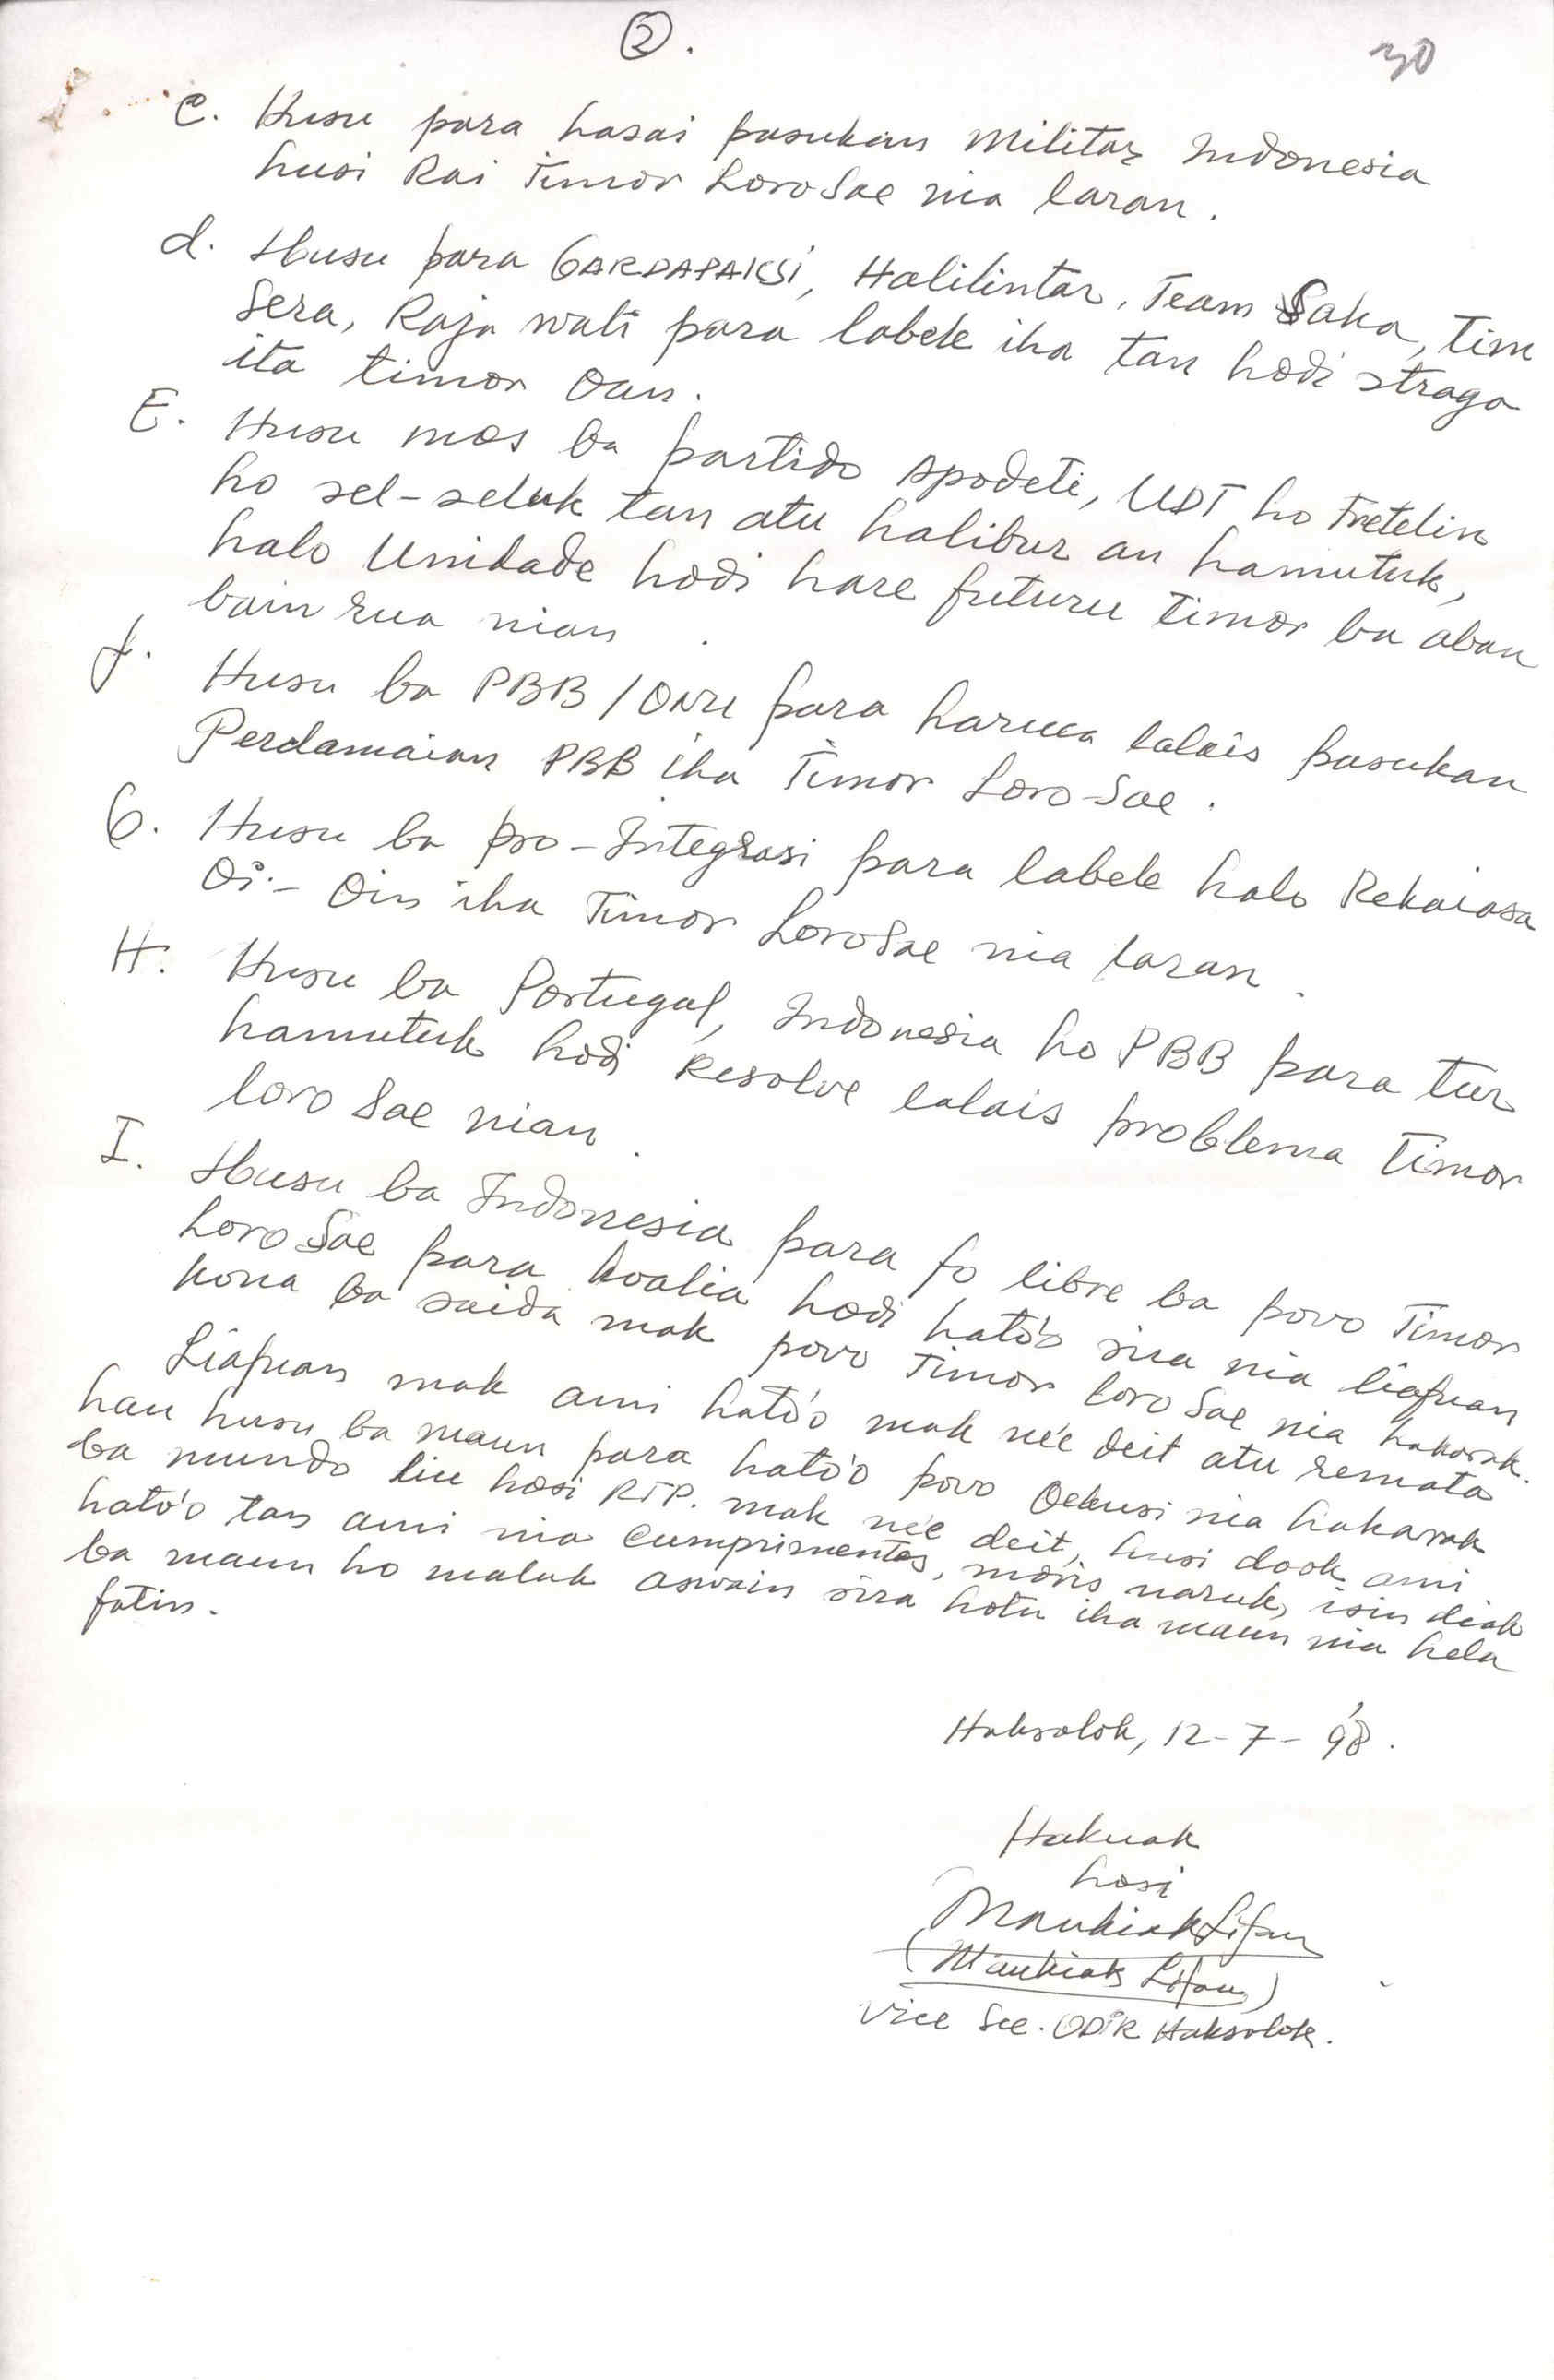 2.
30
c. Husu para hasai pasukan Militar Indonesia
husi Rai Timor LoroSae nia laran.
d. Husu para GARDAPAKSI, Halilintar, Team Saka, Tim
Sera, Raja wali para labele iha tan hodi straga
ita timor Oan.
E. Husu mos ba partido Apodeti, UDT ho Fretelin
ho sel-seluk tan atu halibur an hamutuk,
halo Unidade hodi hare futuru timor ba aban
bain rua nian.
f. Husu ba PBB/ONU para haruca lalais pasukan
Perdamaian PBB iha Timor Loro-Sae.
G. Husu ba pro-Integrasi para labele halo Rekaiasa
Oi-Oin iha Timor LoroSae nia laran.
H. Husu ba Portugal, Indonesia ho PBB para tur
hamutuk hodi Resolve lalais problema Timor
loro Sae nian.
I. Husu ba Indonesia para fo libre ba povo Timor
Loro Sae para koalia hodi hato'o sira nia liafuan
kona ba saida mak povo Timor loro Sae nia hakarak.
Liafuan mak ami hato'o mak ne'e deit atu remata
hau husu ba maun para hato'o povo Oekusi nia hakarak
ba mundo liu hosi RTP. mak ne'e deit, husi dook ami
hato'o tan ami nia cumprimentos, moris naruk, isin diak
ba maun ho maluk aswain sira hotu iha maun nia hela
fatin.
Haksolok, 12-7-'98.
Hakuak
hosi
Maukiak Lifau
(Maukiak Lifau)
Vice Sec. ODIR Haksolok.